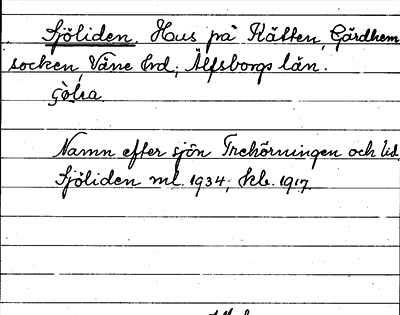 Sjöliden. Hus på Slätten, Gärdhem
socken, Väne hrd, Älfsborgs län.
Namn efter sjön Trehörningen och lid.
Sjöliden ml. 1934; skb. 1917